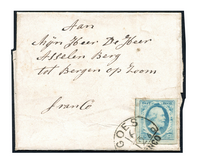 Aan
Mijn Heer De Heer
Asselen Berg
tot Bergen op Zoom
franco
GOES